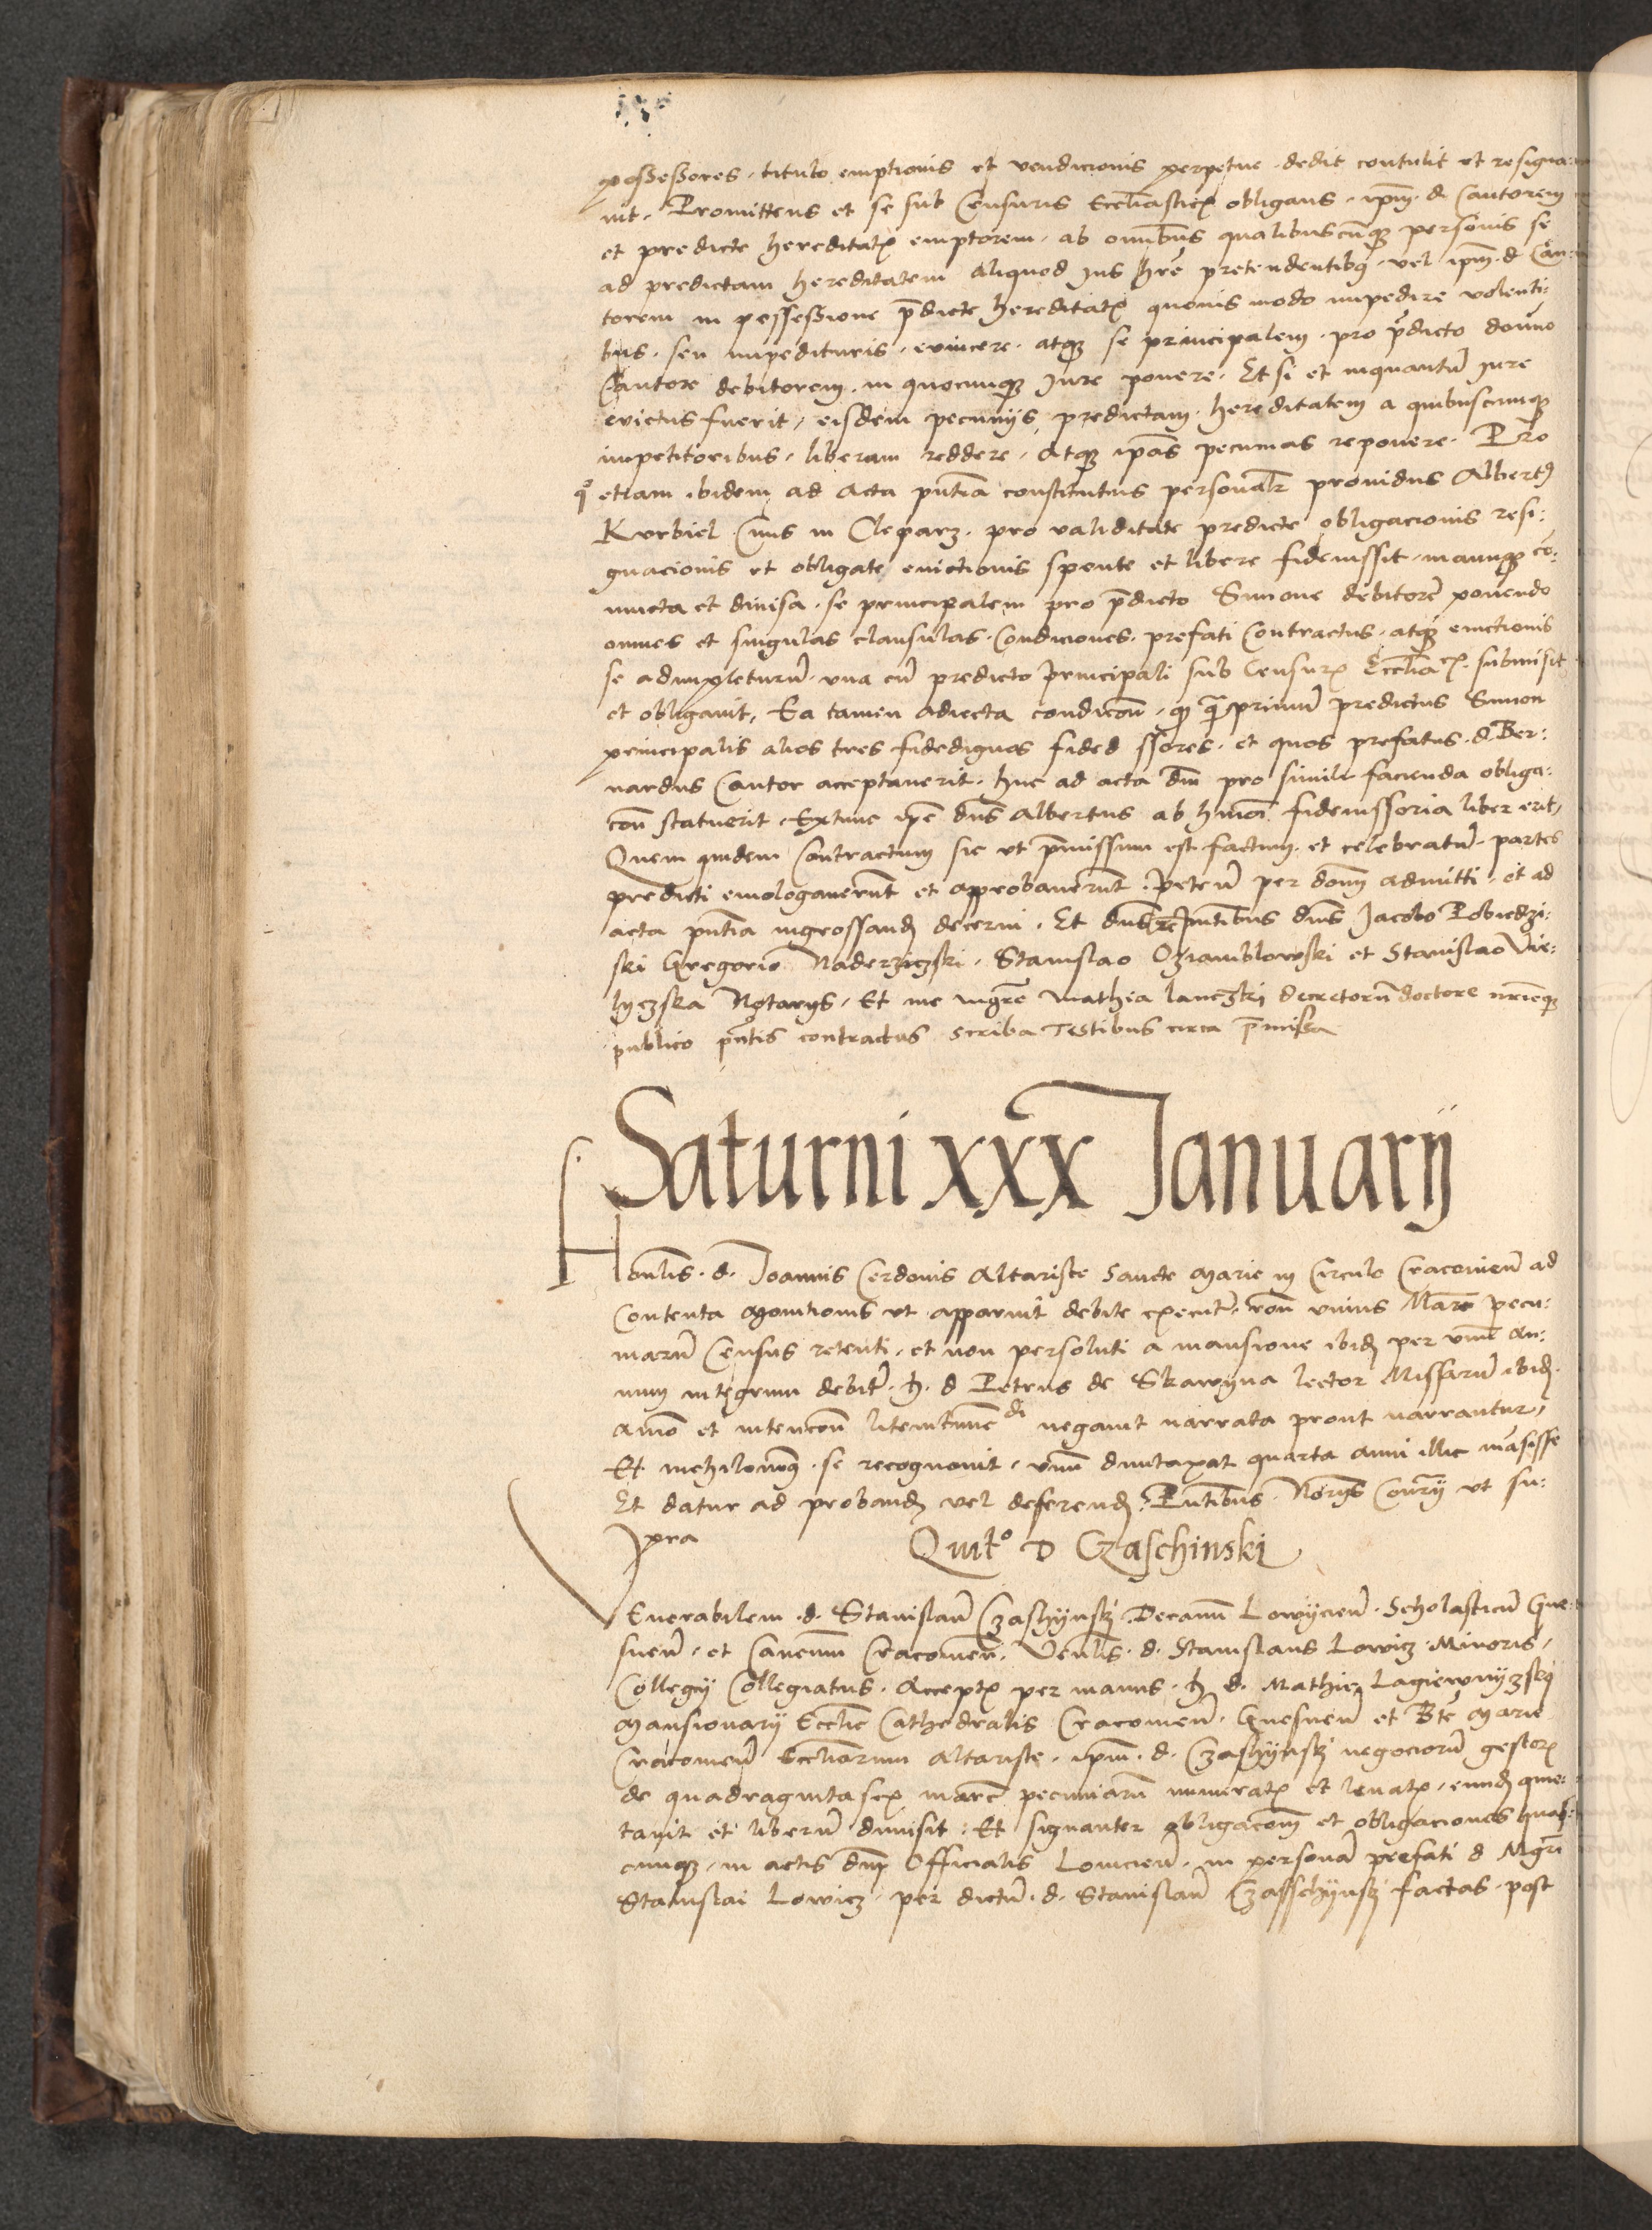 possessores, titulo emptionis et vendicionis perpetue, dedit contulit et resigna:
uit. Promittens et se sub Censuris Ecclīasticꝭ obligans, ipm̄. d. Cantorem
et predicte hereditatꝭ emptorem, ab omībus qualibuscūqꝫ personis se
ad predictam hereditatem aliquod ius hr̄e pretendentibꝫ, vel ipm̄. d. Can:
torem in possessione pͬdicte hereditatꝭ quouis modo impedire volenti:
bus, seu impedituris, euincere, atqꝫ se principalem, pro pͬdicto dom̄no
Cantore debitorem, in quocunqꝫ Jure ponere. Et si et inquantū Jure
euictus fuerit, eisdem pecunijs predictam hereditatem a quibuscunqꝫ
impetitoribus, liberam reddere, Atqꝫ ip̄as pecunias reponere. Pro
qͦ etiam ibidem ad Acta pn̄tia constitutus personalr̄ prouidus Albertꝰ
Kurbiel Ciuis in Cleparz, pro validitate predicte obligacionis resi:
gnacionis et obligate euictionis sponte et libere fideiussit, manuqꝫ co:
niuncta et diuisa, se principalem pro pͬdicto Simone debitorē ponendo
omnes et singulas clausulas, Condiciones, prefati Contractus, atqꝫ euictionis
se adimpleturū, vna cū predicto Principali sub Censurꝭ Ecclīaꝭ, submisit
et obligauit, Ea tamen adiecta condicōn, qꝫ qͣmprimū predictus Simon
principalis alios tres fidedignos fided ssores, et quos prefatus. d. Ber:
nardus Cantor acceptauerit, huc ad acta dn̄i pro simile facienda obliga:
cōn statuerit, Extunc ip̄e dn̄s Albertus ab hmōi fideiussoria liber erit,
Quem quidem Contractum sic vt pͬmissum est factum, et celebratū, partes
predicti emologauerunt et approbauerunt. Peteñ per dom̄ admitti, et ad
acta pn̄tia ingrossand̄ decerni. Et dn̄s Pn̄tibus dn̄is Jacobo Pobiedzi:
ski Gregorio Naderziczski, Stanislao Oziamblowski et Stanislao Vie:
lyczska Notarijs, Et me mgr̄o Mathia lanczki decretorū doctore nr̄ieqꝫ
publico pn̄tis contractus scriba Testibus circa pͬmissa
Saturni xxx Januarij
Honlis. d. Joannis Cerdonis Altariste Sancte Marie in Circulo Cracouieñ ad
Contenta Monitionis vt apparuit debite executꝭ, rōn vnius Marc̄ pecu:
niarū Census retenti, et non persoluti a mansione ibid̄ per vnū an:
num integrum debitꝭ. H. d Petrus de Skawyna lector Missarū ibid̄.
Animo et intencōn litem di negauit narrata prout narrantur,
Et nichilominꝰ se recognouit, vnū duntaxat quarta anni illic māsisse
Et datur ad proband̄ vel deferend̄. Pn̄tibus Norijs Con̄rij vt su:
pra
Quitᵒ D Czaschinski
Venerabilem. d. Stanislaū Czaschynsky Decanū Lowycieñ. Scholasticū Gne:
sneñ. et Canonm̄ Cracouieñ. Venlis. d. Stanislaus Lowicz Minoris,
Collegij Collegiatus. Acceptꝭ per manus. H. d. Mathie Lagiewnyzsky
Mansionarij Ecclīe Cathedralis Cracouieñ. Gnesneñ et Bt̄e Marie
Cracouieñ Ecclīarum altariste, ipm̄. d. Czaschynsky negociorū gestorꝭ
de quadragintasex marc̄ pecuniarū numeratꝭ et leuatꝭ, eund̄ quie:
tauit et liberū dimisit: Et signanter obligacōm et obligaciones quas:
cunqꝫ, in actis dn̄j Officialis Louicieñ, in personā prefati d Mgr̄i
Stanislai Lowicz, per dictū. d. Stanislaū Czasschynsky factas, post